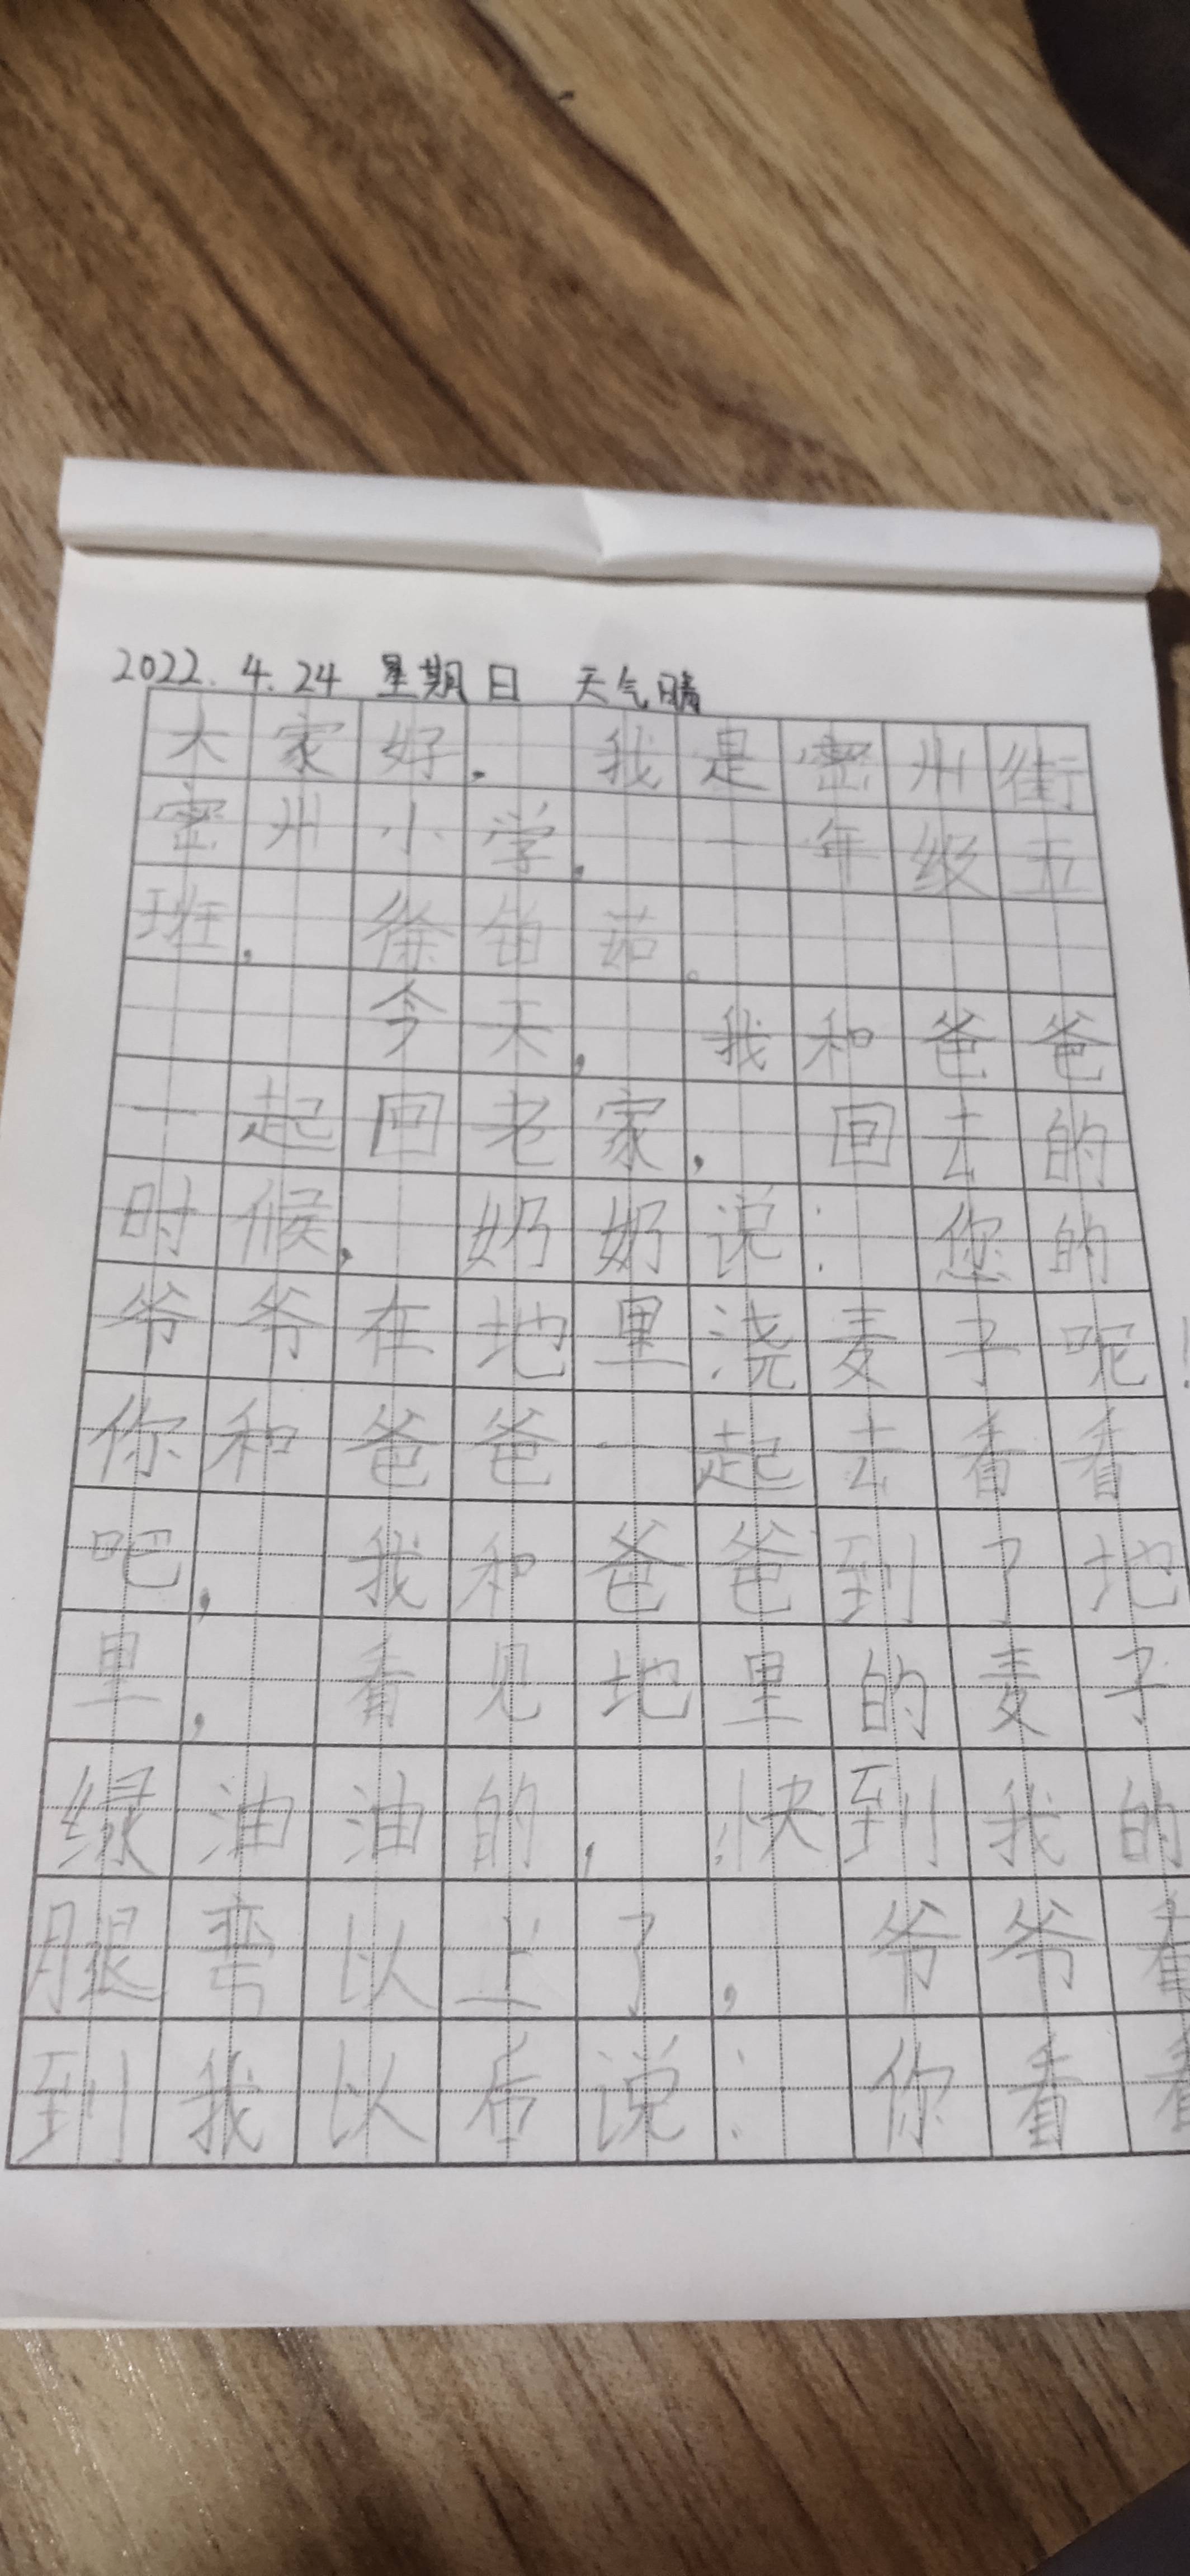 2022.4.24 星期日 天气晴
大家好, 我是密州街
密州小学, 一年级五
班, 徐铂茹。
今天, 我和爸爸
一起回老家, 回去的
时候, 奶奶说: 您的
爷爷在地里浇麦子呢!
你和爸爸一起去看看
吧, 我和爸爸到了地
里, 看见地里的麦子
绿油油的, 快到我的
腿弯以上了, 爷爷看
到我以后说: 你看看